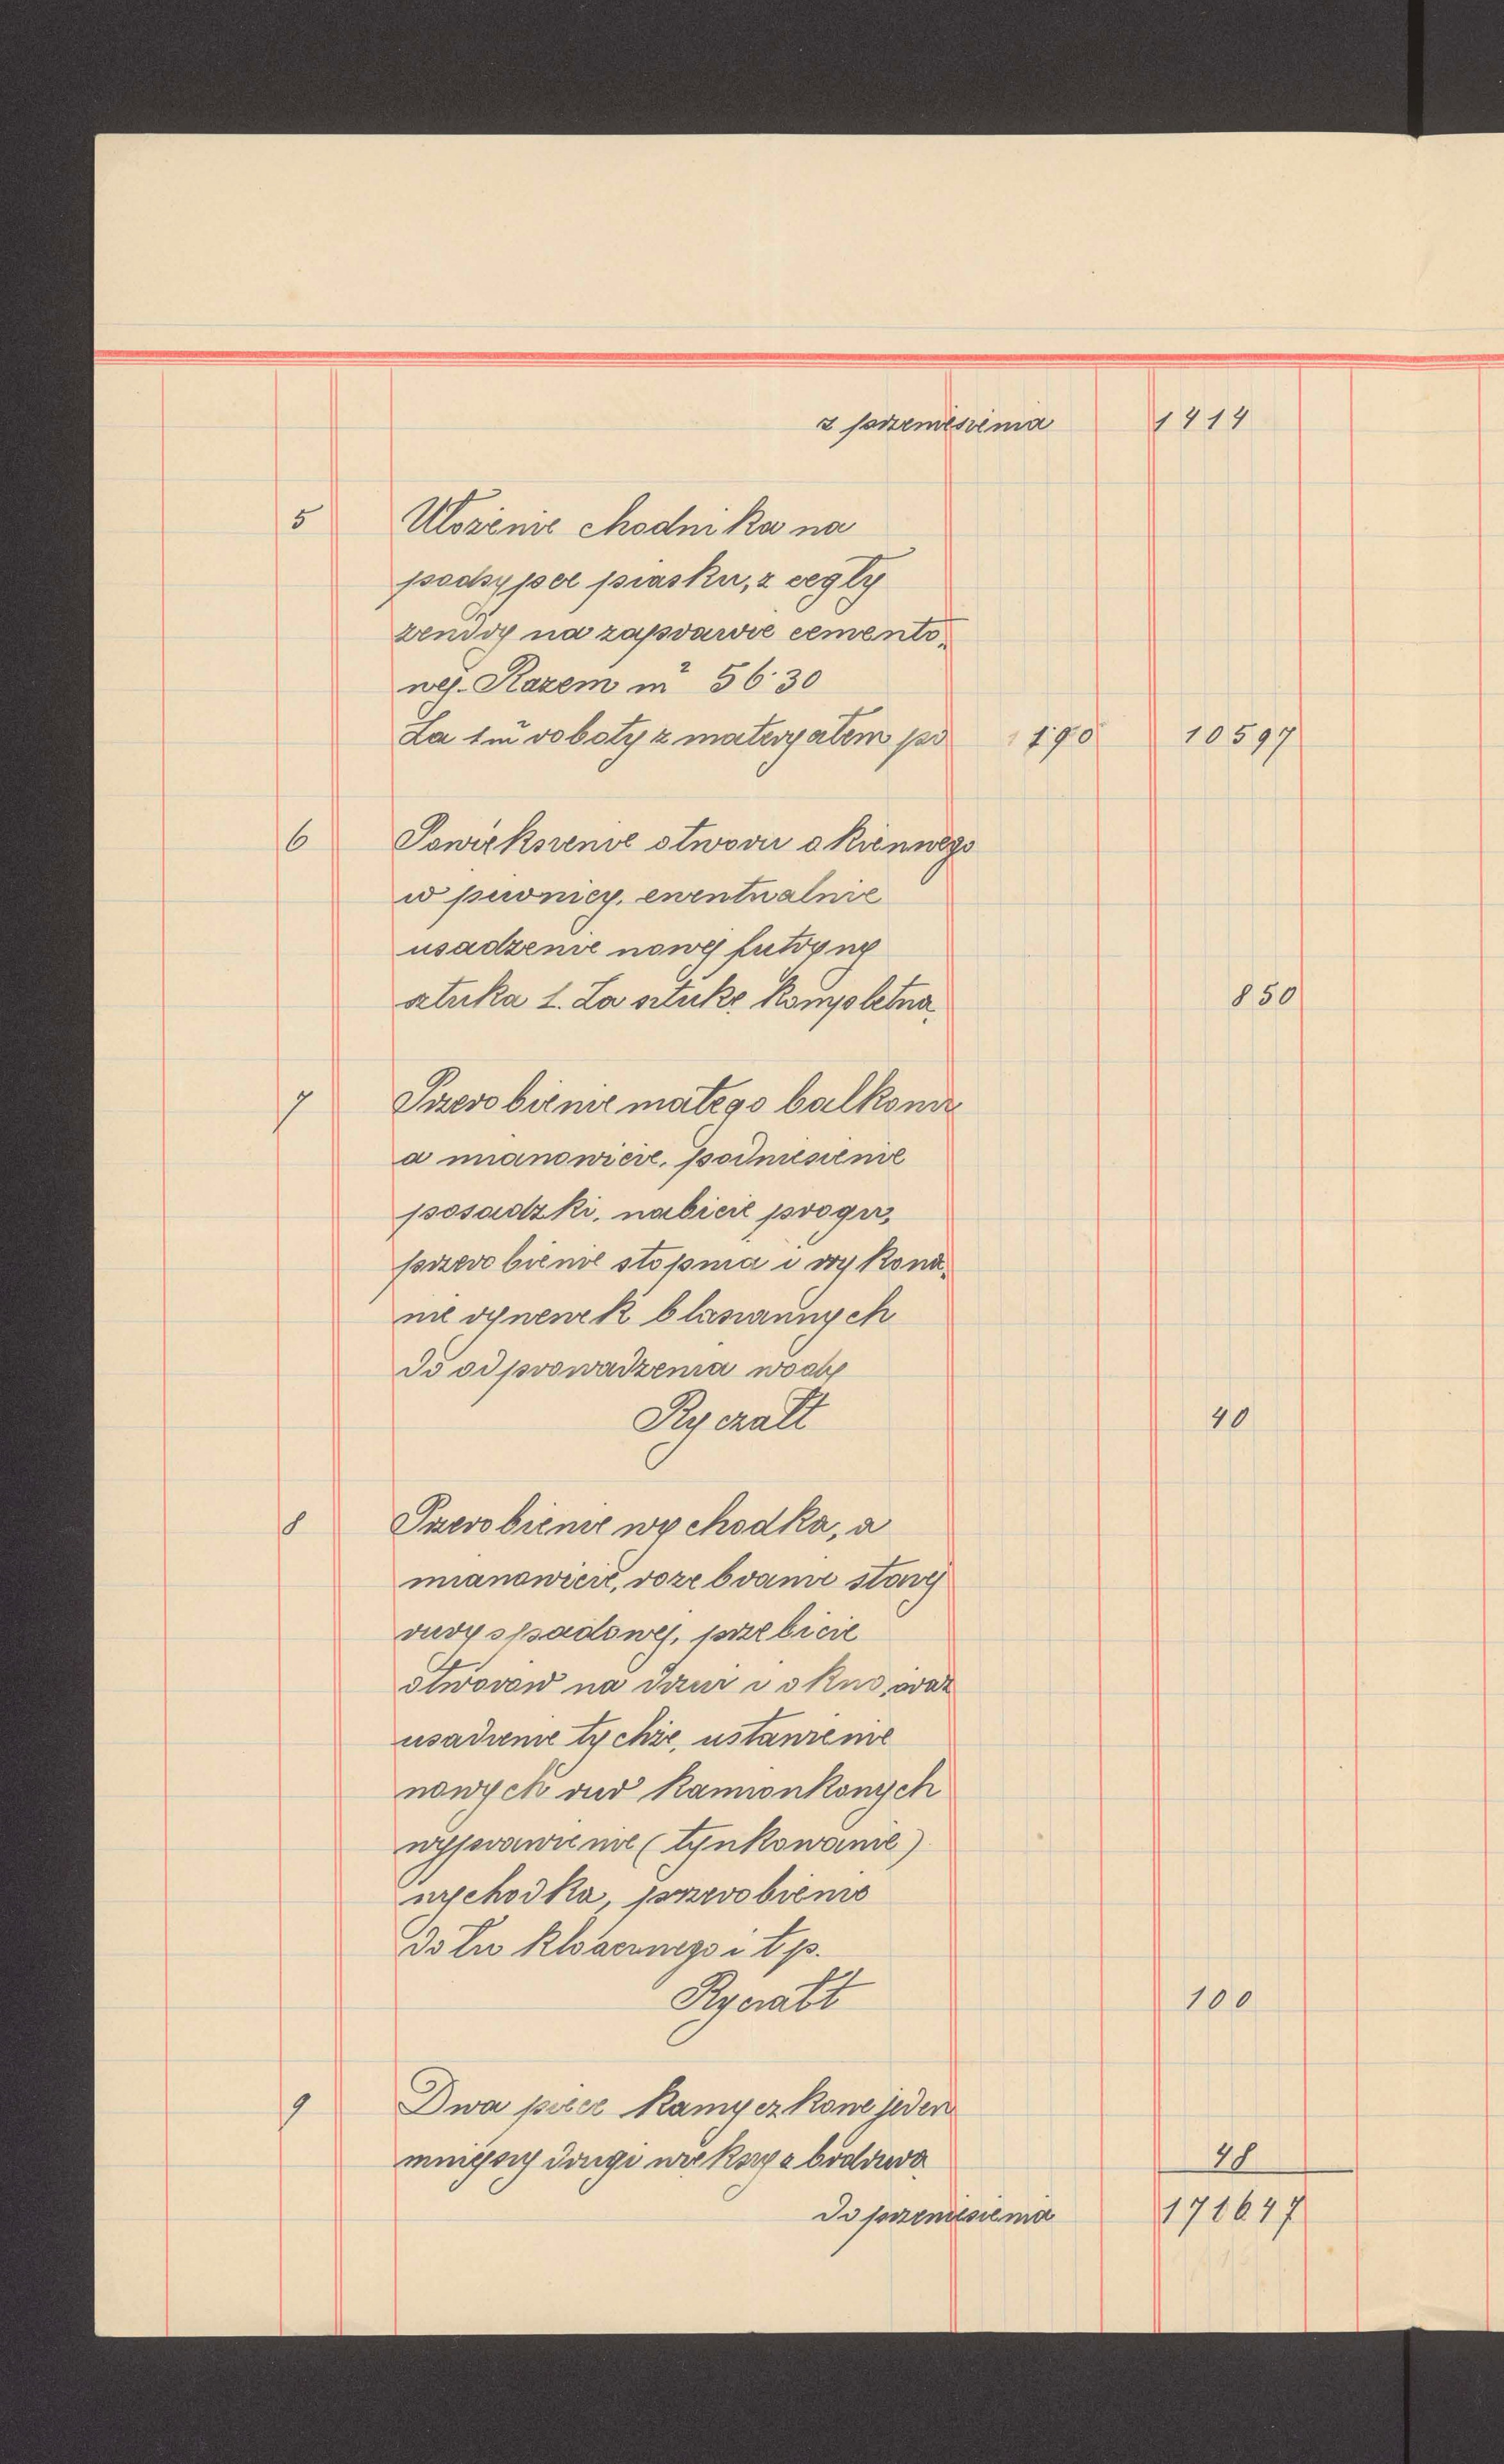 z przeniesienia 1414
5 Ułożenie chodnika na
podsypce piasku, z cegły
zendry na zaprawie cemento-
wej. Razem m² 56·30
Za 1m² roboty z materyałem po 190 10597
6 Powiększenie otworu okiennego
w piwnicy, ewentualnie
usadzenie nowej futryny
sztuka 1. Za sztukę kompletną 850
7 Przerobienie małego balkonu
a mianowicie, podniesienie
posadzki, nabicie progu,
przerobienie stopnia i wykona-
nie rynewek blaszannych
do odprowadzenia wody
Ryczałt 40
8 Przerobienie wychodka, a
mianowicie, rozebranie starej
rury spadowej, przebicie
otworów na drzwi i okno, oraz
usadzenie tychże, ustawienie
nowych rur kamionkowych
wyprawienie (tynkowanie)
wychodka, przerobienie
dołu kloacznego i t. p.
Ryczałt 100
9 Dwa piece kamyczkowe jeden
mniejszy drugi większy z 48
Do przeniesienia 171647